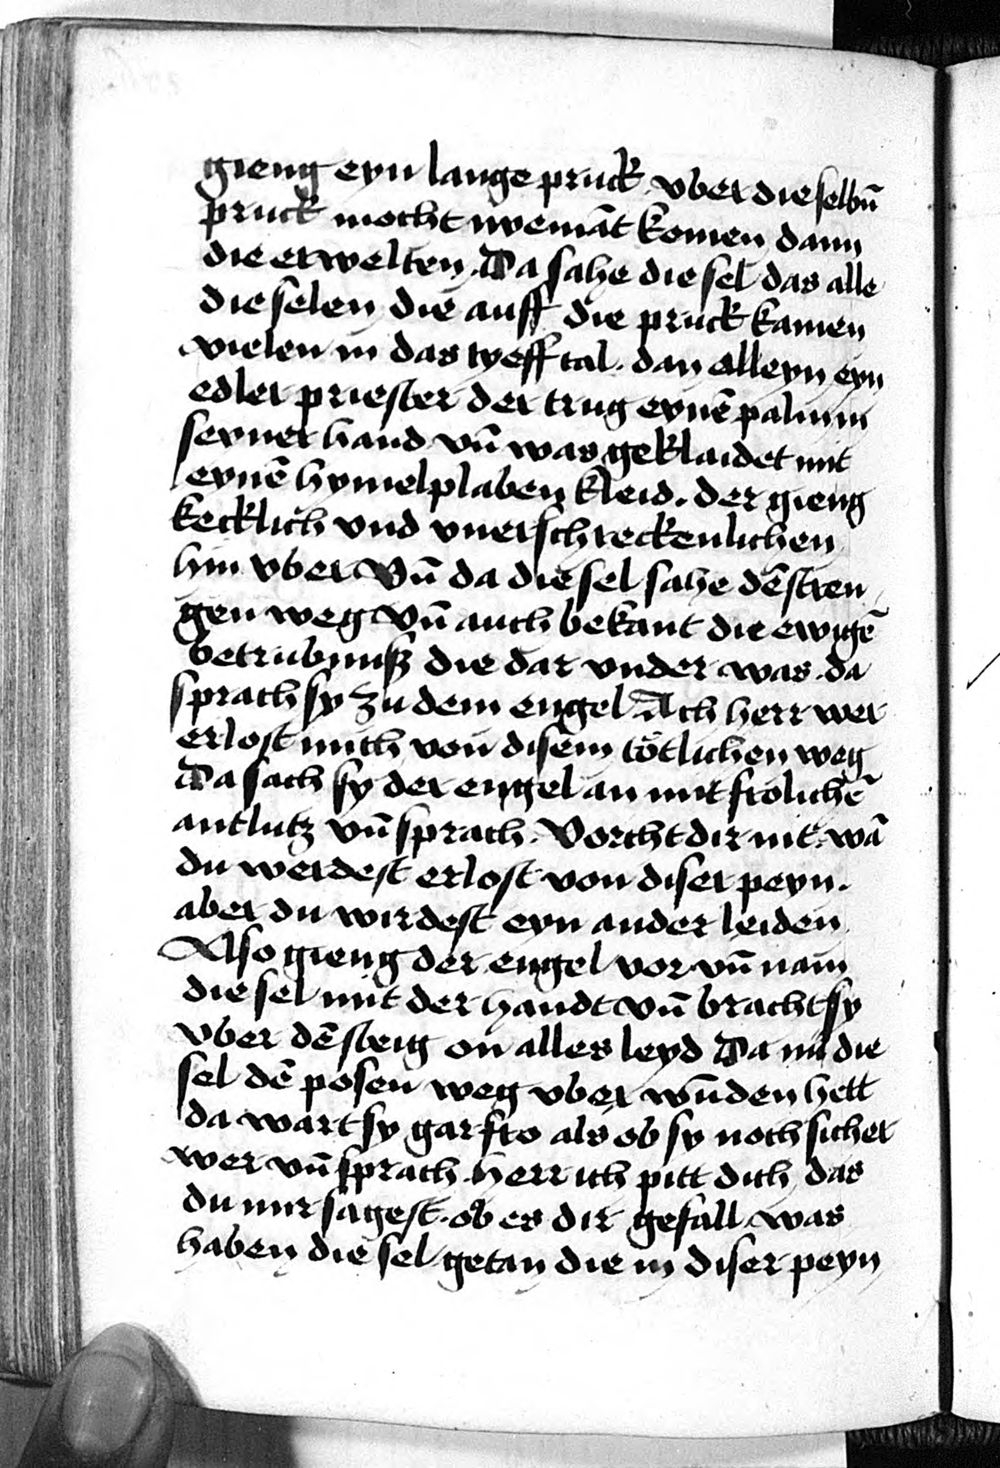 gieng eyn lange pruck vber die selbñ
pruck mocht nyemāt komen dann
die erwelten. Da sahe die sel das alle
die selen die auff die pruck kamen
vielen in das tyeff tal. dan alleyn eyn
edler priester der trug eynē palm in
seyner hand vñ was geklaidet mit
eynē hymelplaben kleid. der gieng
kecklich vnd vnerschreckenlichen
hin vber Vñ da die sel sahe dē stren
gen weg Vñ auch bekant die ewigē
betrubnuß die dar vnder was. da
sprach sy zu dem engel Ach herr wer
erlost mich von disem tötlichen weg
Da sach sy der engel an mit frolichē
antlutz vñ sprach. Vorcht dir nit. wā
du werdest erlost von diser peyn.
aber du wirdest eyn ander leiden
Also gieng der engel vor vñ nam
die sel mit der handt vñ bracht sy
vber dē steig on alles leyd Da nu die
sel dē posen weg vber wūden hett
da wart sy gar fro als ob sy noch sicher
wer vñ sprach. herr ich pitt dich das
du mir sagest. ob es dir gefall was
haben die sel getan die in diser peyn